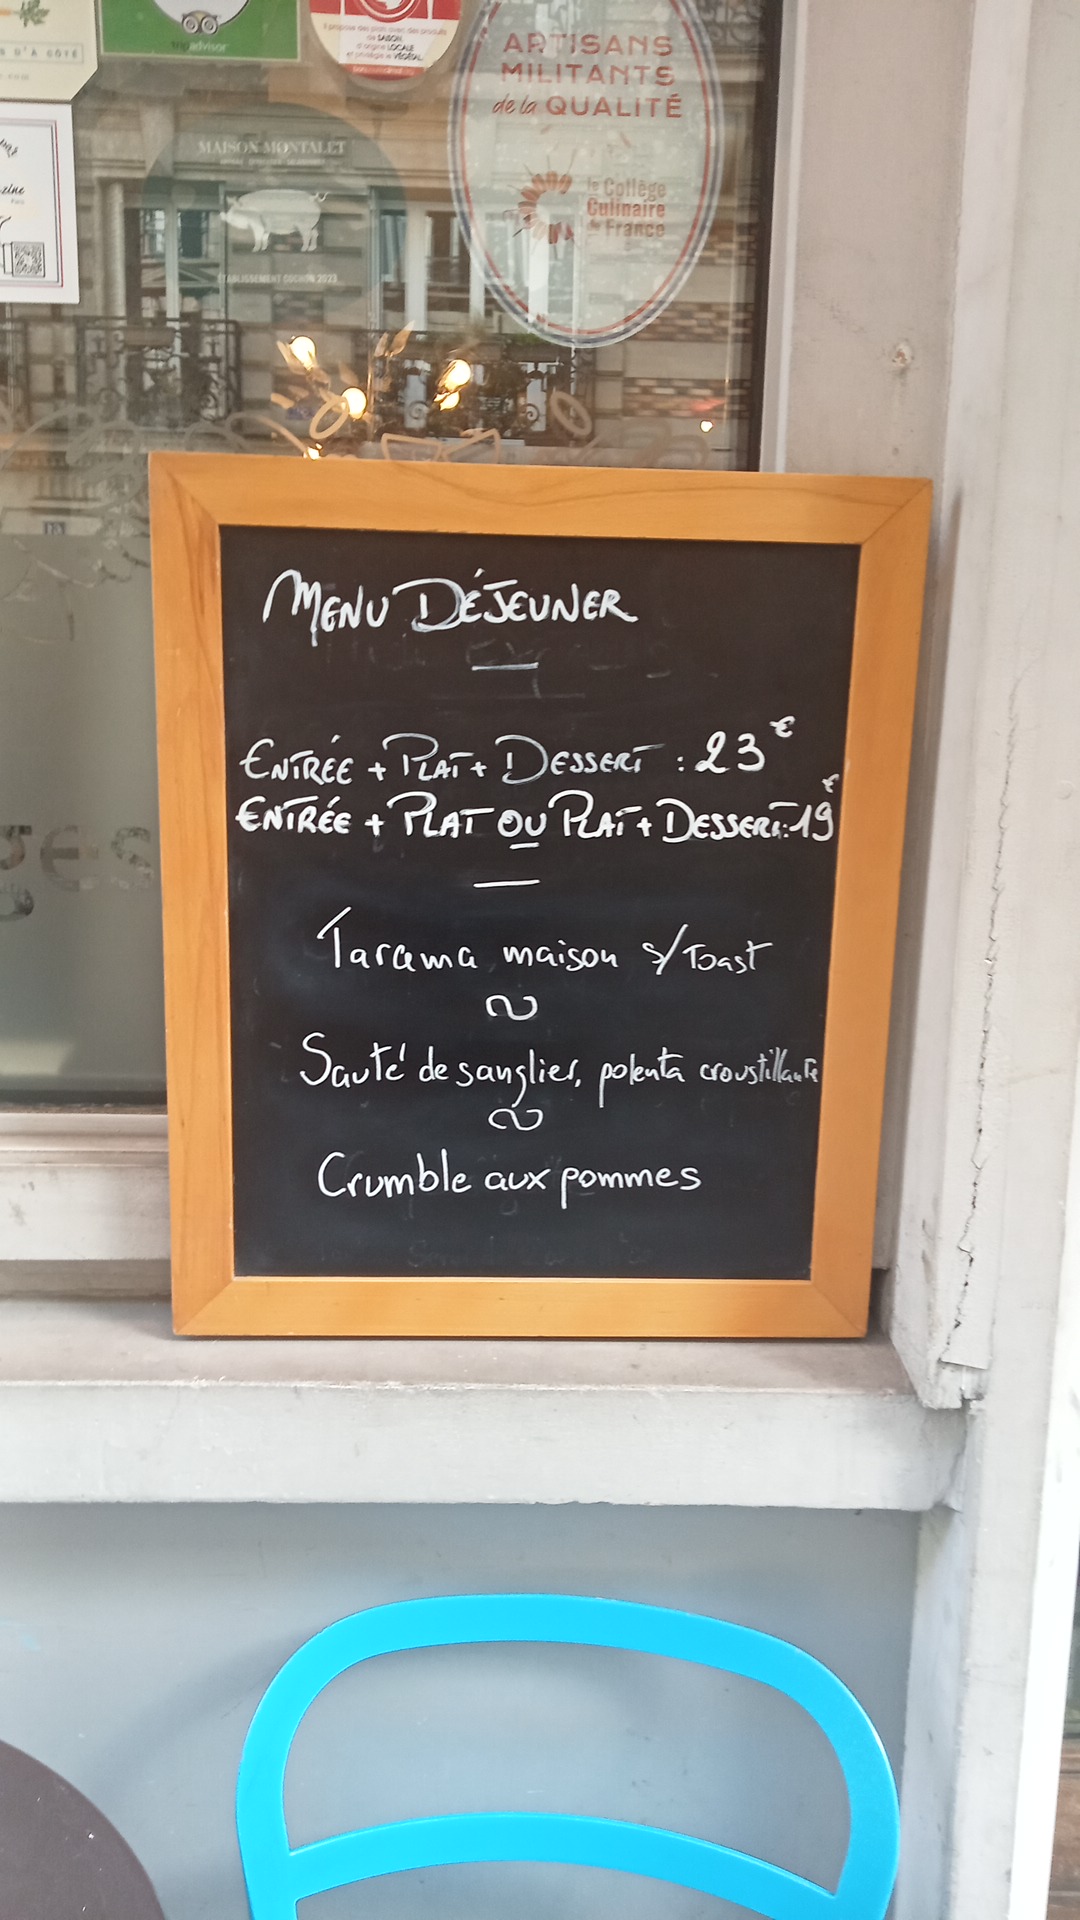 tripadvisor
Il propose des plats avec des produits
de SAISON,
d'origine LOCALE
et privilégie le VÉGÉTAL
S D'À CÔTÉ
ARTISANS
MILITANTS
de la QUALITÉ
le Collège
Culinaire
de France
MAISON MONTALET
ÉTABLISSEMENT COCHON 2023
zine
Paris
13
ges
MENU DÉJEUNER
ENTRÉE + PLAT + DESSERT : 23€
ENTRÉE + PLAT OU PLAT + DESSERT : 19€
Tarama maison s/Toast
Sauté de sanglier, polenta croustillante
Crumble aux pommes